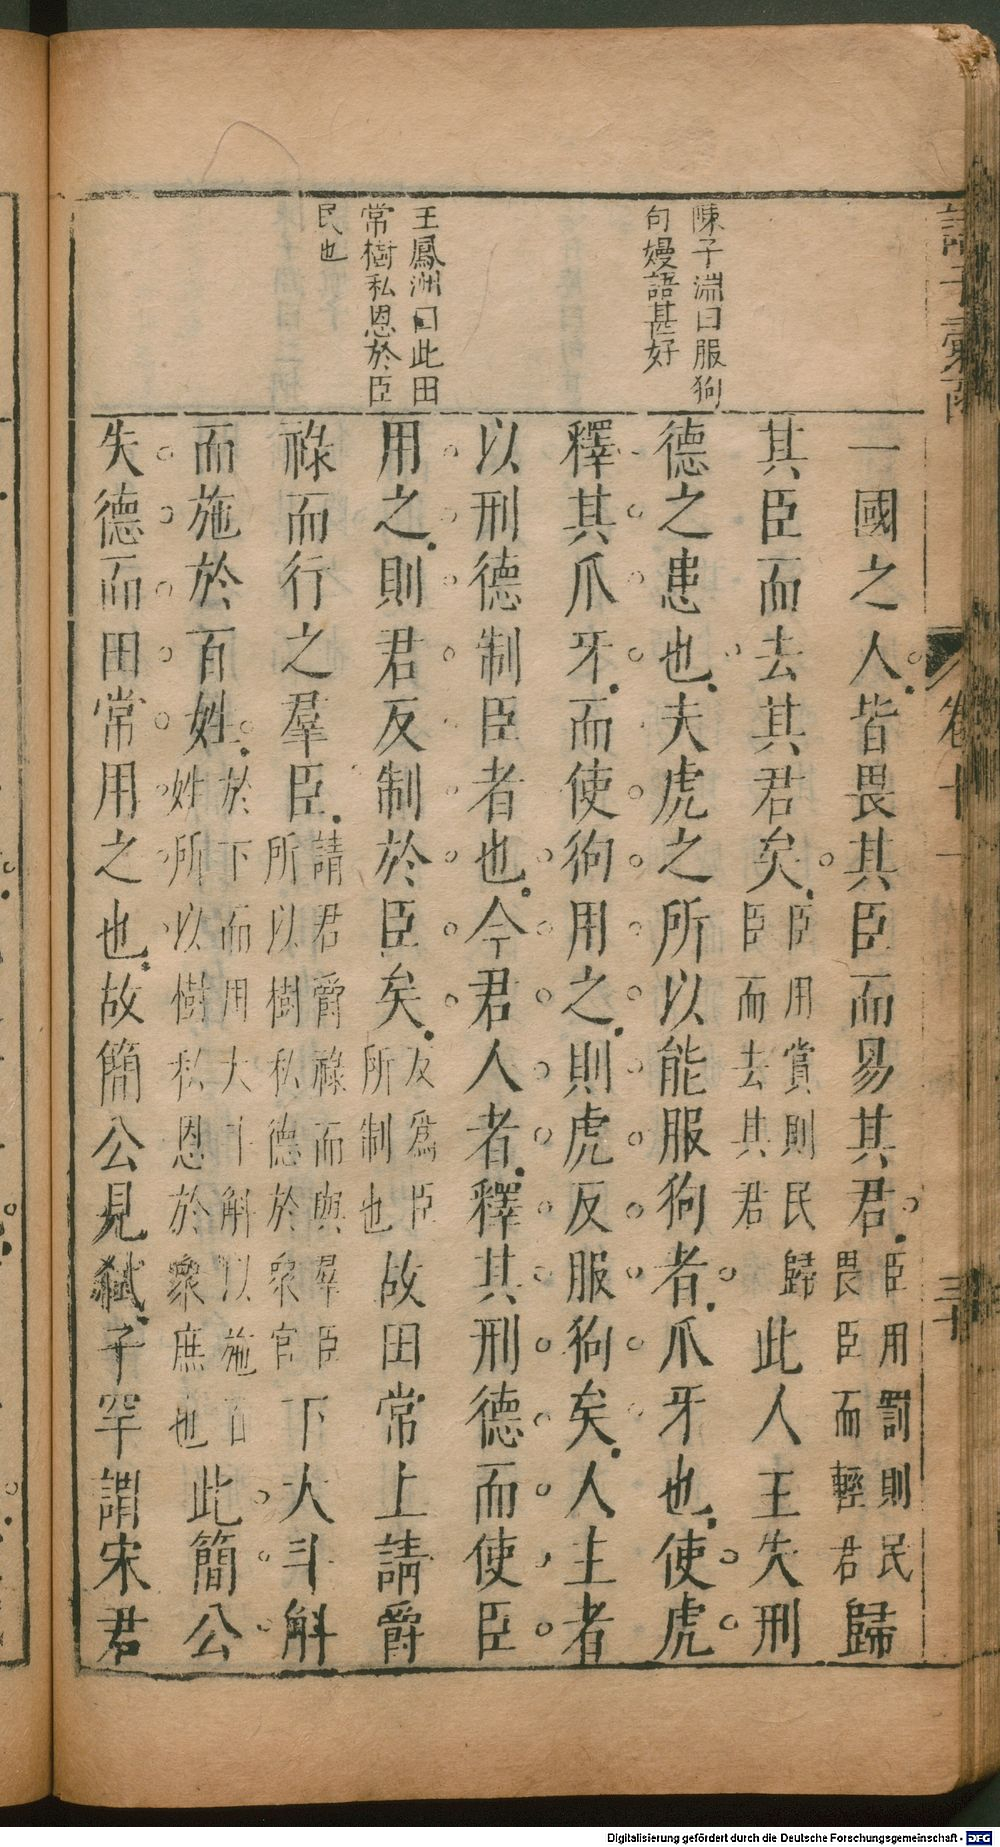 陳子淵曰服狗
句嫚語甚好
王鳳洲曰此田
常樹私恩於臣
民也
一國之人皆畏其臣而易其君臣用罰則民畏臣而輕君歸
其臣而去其君矣臣用賞則民歸臣而去其君此人王失刑
德之患也夫虎之所以能服狗者爪牙也使虎
釋其爪牙而使狗用之則虎反服狗矣人主者
以刑德制臣者也今君人者釋其刑德而使臣
用之則君反制於臣矣反爲臣所制也故田常上請爵
祿而行之羣臣請君爵祿而與羣臣所以樹私德於衆官下大斗斛
而施於百姓於下而用大斗斛以施百姓所以樹私恩於衆庶也此簡公
失德而田常用之也故簡公見弑子罕謂宋君
卷十一
三十
Digitalisierung gefördert durch die Deutsche Forschungsgemeinschaft - DFG